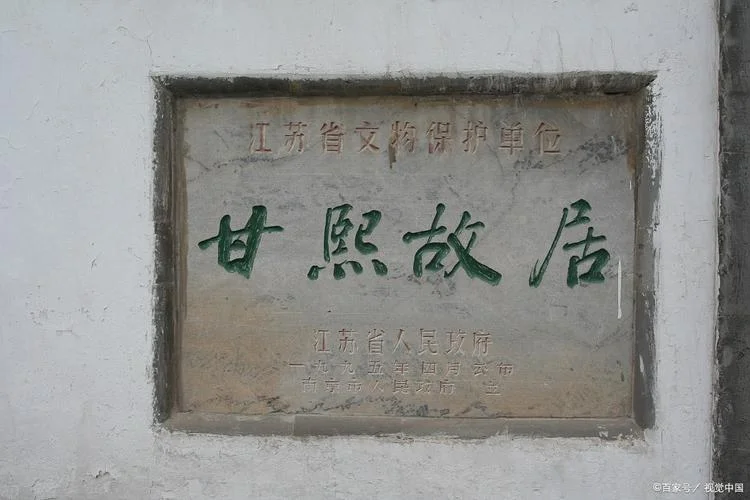 江苏省文物保护单位
甘熙故居
江苏省人民政府
一九九五年四月公布
南京市人民政府 立
©百家号/视觉中国